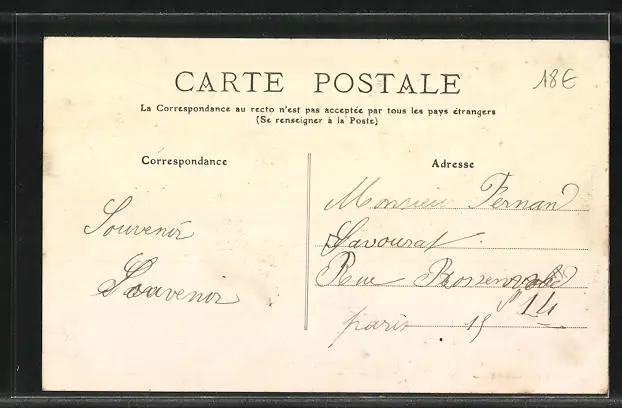 CARTE POSTALE
18€
La Correspondance au recto n'est pas acceptée par tous les pays étrangers
(Se renseigner à la Poste)
Correspondance
Adresse
Souvenir
Souvenir
Monsieur Fernand
Savourat
Rue
14
paris 15